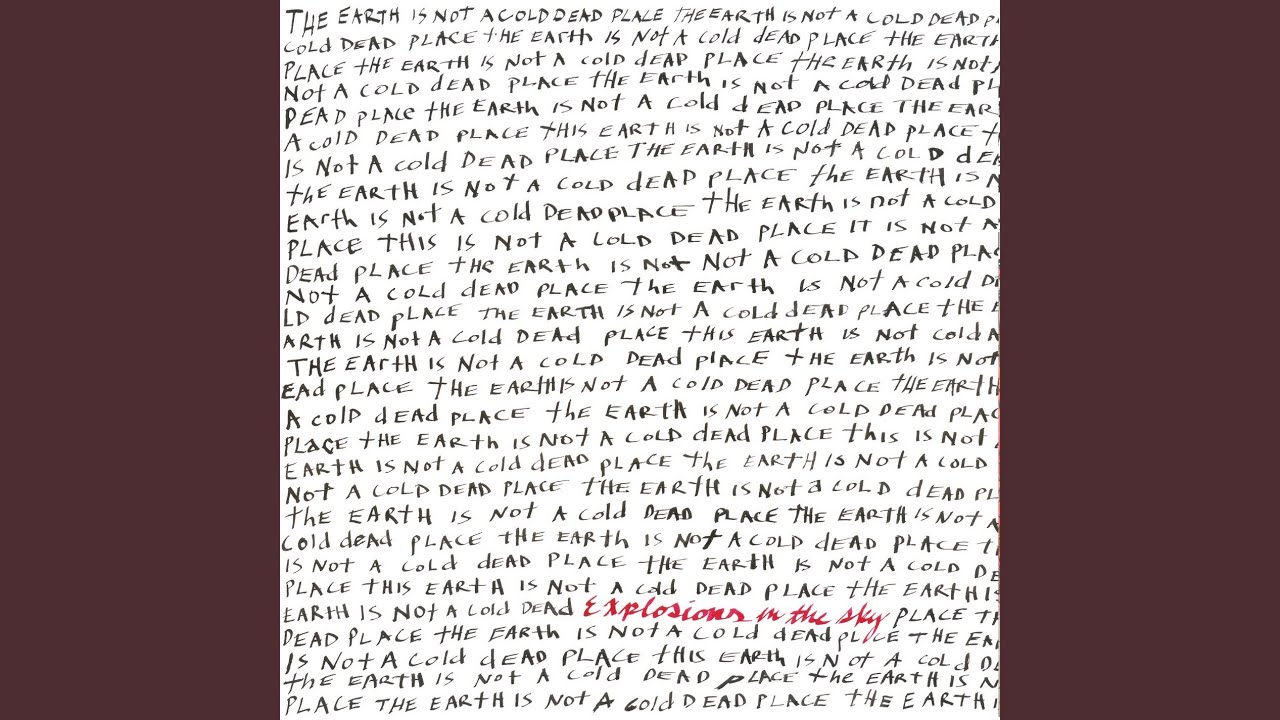 THE EARTH IS NOT A COLD DEAD PLACE THE EARTH IS NOT A COLD DEAD P
COLD DEAD PLACE THE EARTH IS NOT A COLD DEAD PLACE THE EARTH
PLACE THE EARTH IS NOT A COLD DEAD PLACE THE EARTH IS NOT
NOT A COLD DEAD PLACE THE EARTH IS NOT A COLD DEAD PL
DEAD PLACE THE EARTH IS NOT A COLD DEAD PLACE THE EAR
A COLD DEAD PLACE THIS EARTH IS NOT A COLD DEAD PLACE T
IS NOT A COLD DEAD PLACE THE EARTH IS NOT A COLD DEA
THE EARTH IS NOT A COLD DEAD PLACE THE EARTH IS N
EARTH IS NOT A COLD DEAD PLACE THE EARTH IS NOT A COLD
PLACE THIS IS NOT A COLD DEAD PLACE IT IS NOT A
DEAD PLACE THE EARTH IS NOT NOT A COLD DEAD PLAC
NOT A COLD DEAD PLACE THE EARTH IS NOT A COLD D
LD DEAD PLACE THE EARTH IS NOT A COLD DEAD PLACE THE E
ARTH IS NOT A COLD DEAD PLACE THIS EARTH IS NOT COLD A
THE EARTH IS NOT A COLD DEAD PLACE THE EARTH IS NOT
EAD PLACE THE EARTH IS NOT A COLD DEAD PLACE THE EARTH
A COLD DEAD PLACE THE EARTH IS NOT A COLD DEAD PLAC
PLACE THE EARTH IS NOT A COLD DEAD PLACE THIS IS NOT
EARTH IS NOT A COLD DEAD PLACE THE EARTH IS NOT A COLD
NOT A COLD DEAD PLACE THE EARTH IS NOT a COLD DEAD PL
THE EARTH IS NOT A COLD DEAD PLACE THE EARTH IS NOT A
COLD DEAD PLACE THE EARTH IS NOT A COLD DEAD PLACE T
IS NOT A COLD DEAD PLACE THE EARTH IS NOT A COLD DE
PLACE THIS EARTH IS NOT A COLD DEAD PLACE THE EARTH IS
EARTH IS NOT A COLD DEAD Explosions in the sky PLACE TH
DEAD PLACE THE EARTH IS NOT A COLD DEAD PLACE THE EA
IS NOT A COLD DEAD PLACE THIS EARTH IS NOT A COLD D
THE EARTH IS NOT A COLD DEAD PLACE THE EARTH IS N
PLACE THE EARTH IS NOT A COLD DEAD PLACE THE EARTH